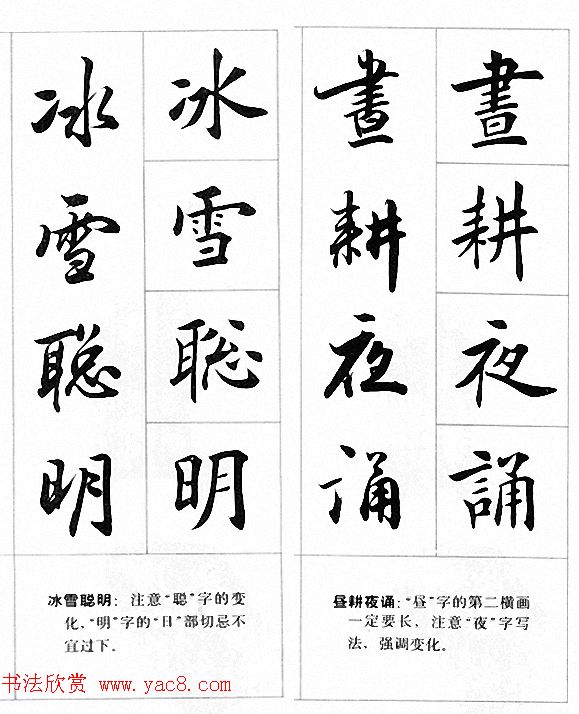 晝耕夜誦
晝耕夜诵
昼耕夜诵：“昼”字的第二横画
一定要长、注意“夜”字写
法，强调变化。
冰雪聪明
冰雪聪明
冰雪聪明：注意“聪”字的变
化、“明”字的“日”部切忌不
宜过下。
书法欣赏 www.yac8.com